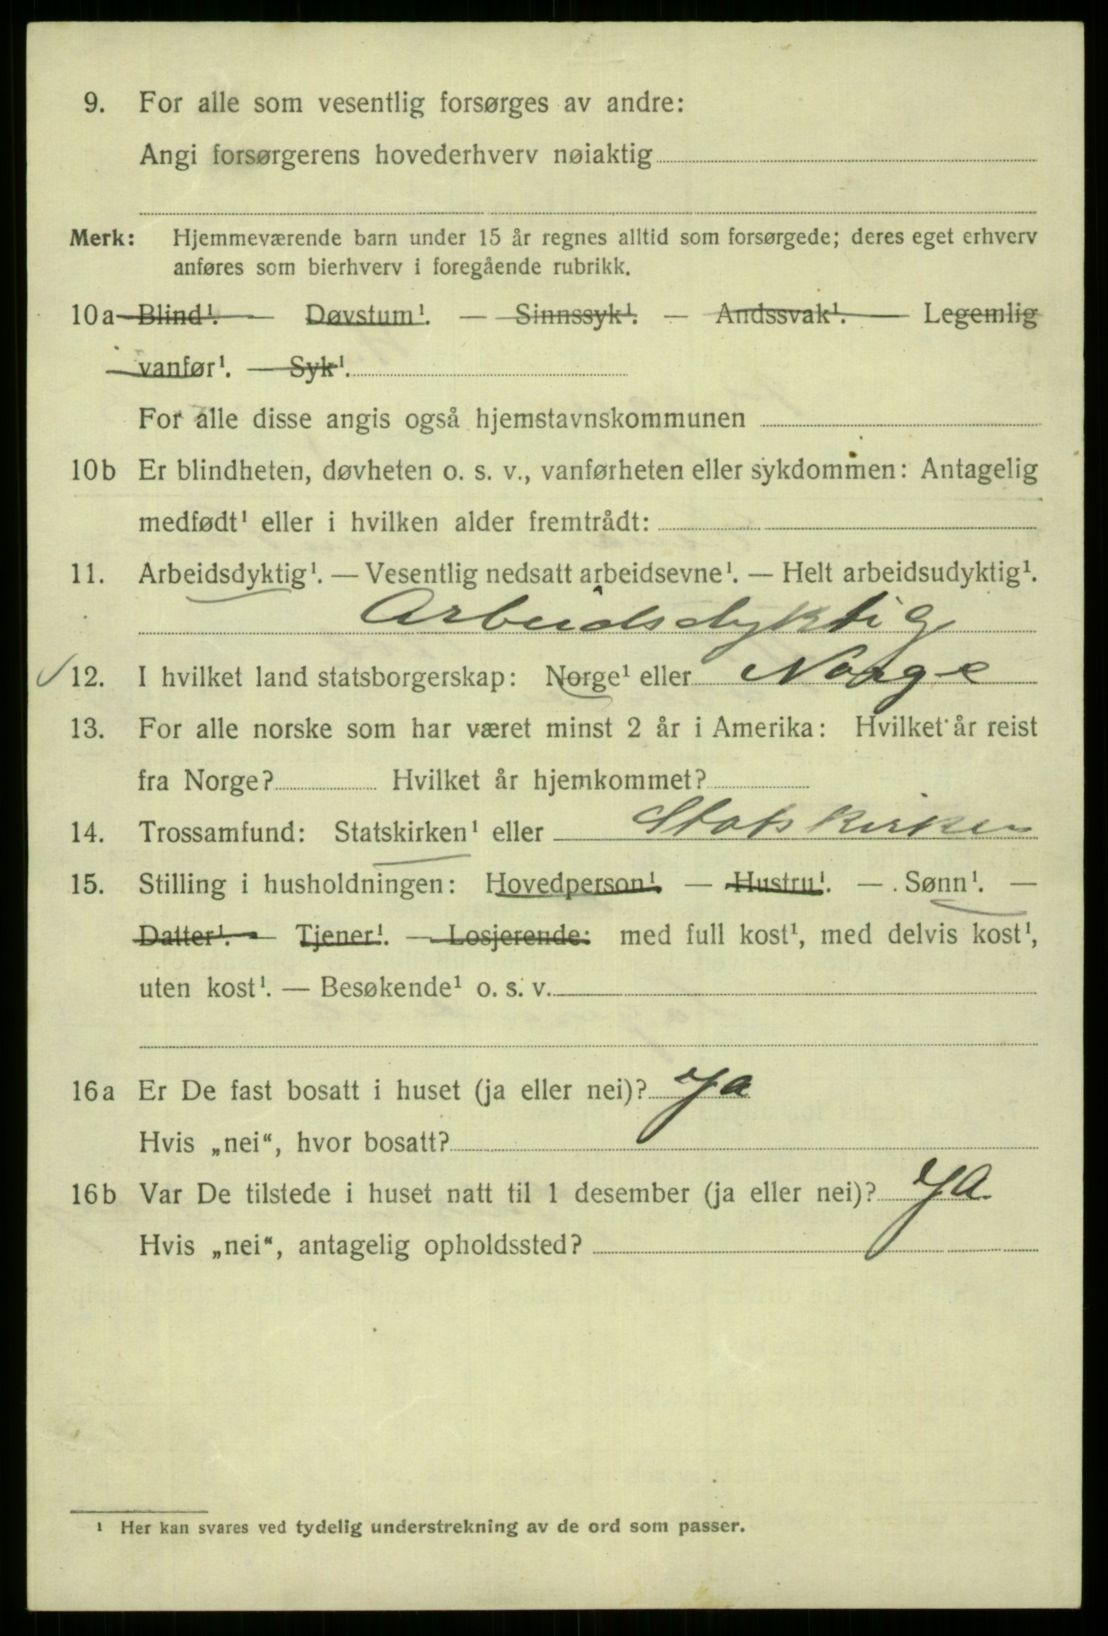 9. For alle som vesentlig forsørges av andre:
Angi forsørgerens hovederhverv nøiaktig
Merk: Hjemmeværende barn under 15 år regnes alltid som forsørgede; deres eget erhverv
anføres som bierhverv i foregående rubrikk.
10 a Blind¹. — Døvstum¹. — Sinnssyk¹. — Andssvak¹. — Legemlig
vanfør¹. — Syk¹.
For alle disse angis også hjemstavnskommunen
10 b Er blindheten, døvheten o. s. v., vanførheten eller sykdommen: Antagelig
medfødt¹ eller i hvilken alder fremtrådt:
11. Arbeidsdyktig¹. — Vesentlig nedsatt arbeidsevne¹. — Helt arbeidsudyktig¹.
Arbeidsdyktig
12. I hvilket land statsborgerskap: Norge¹ eller Norge
13. For alle norske som har været minst 2 år i Amerika: Hvilket år reist
fra Norge? Hvilket år hjemkommet?
14. Trossamfund: Statskirken¹ eller Statskirken
15. Stilling i husholdningen: Hovedperson¹. — Hustru¹. — Sønn¹. —
Datter¹. — Tjener¹. — Losjerende: med full kost¹, med delvis kost¹,
uten kost¹. — Besøkende¹ o. s. v.
16 a Er De fast bosatt i huset (ja eller nei)? Ja
Hvis „nei“, hvor bosatt?
16 b Var De tilstede i huset natt til 1 desember (ja eller nei)? Ja
Hvis „nei“, antagelig opholdssted?
¹ Her kan svares ved tydelig understrekning av de ord som passer.